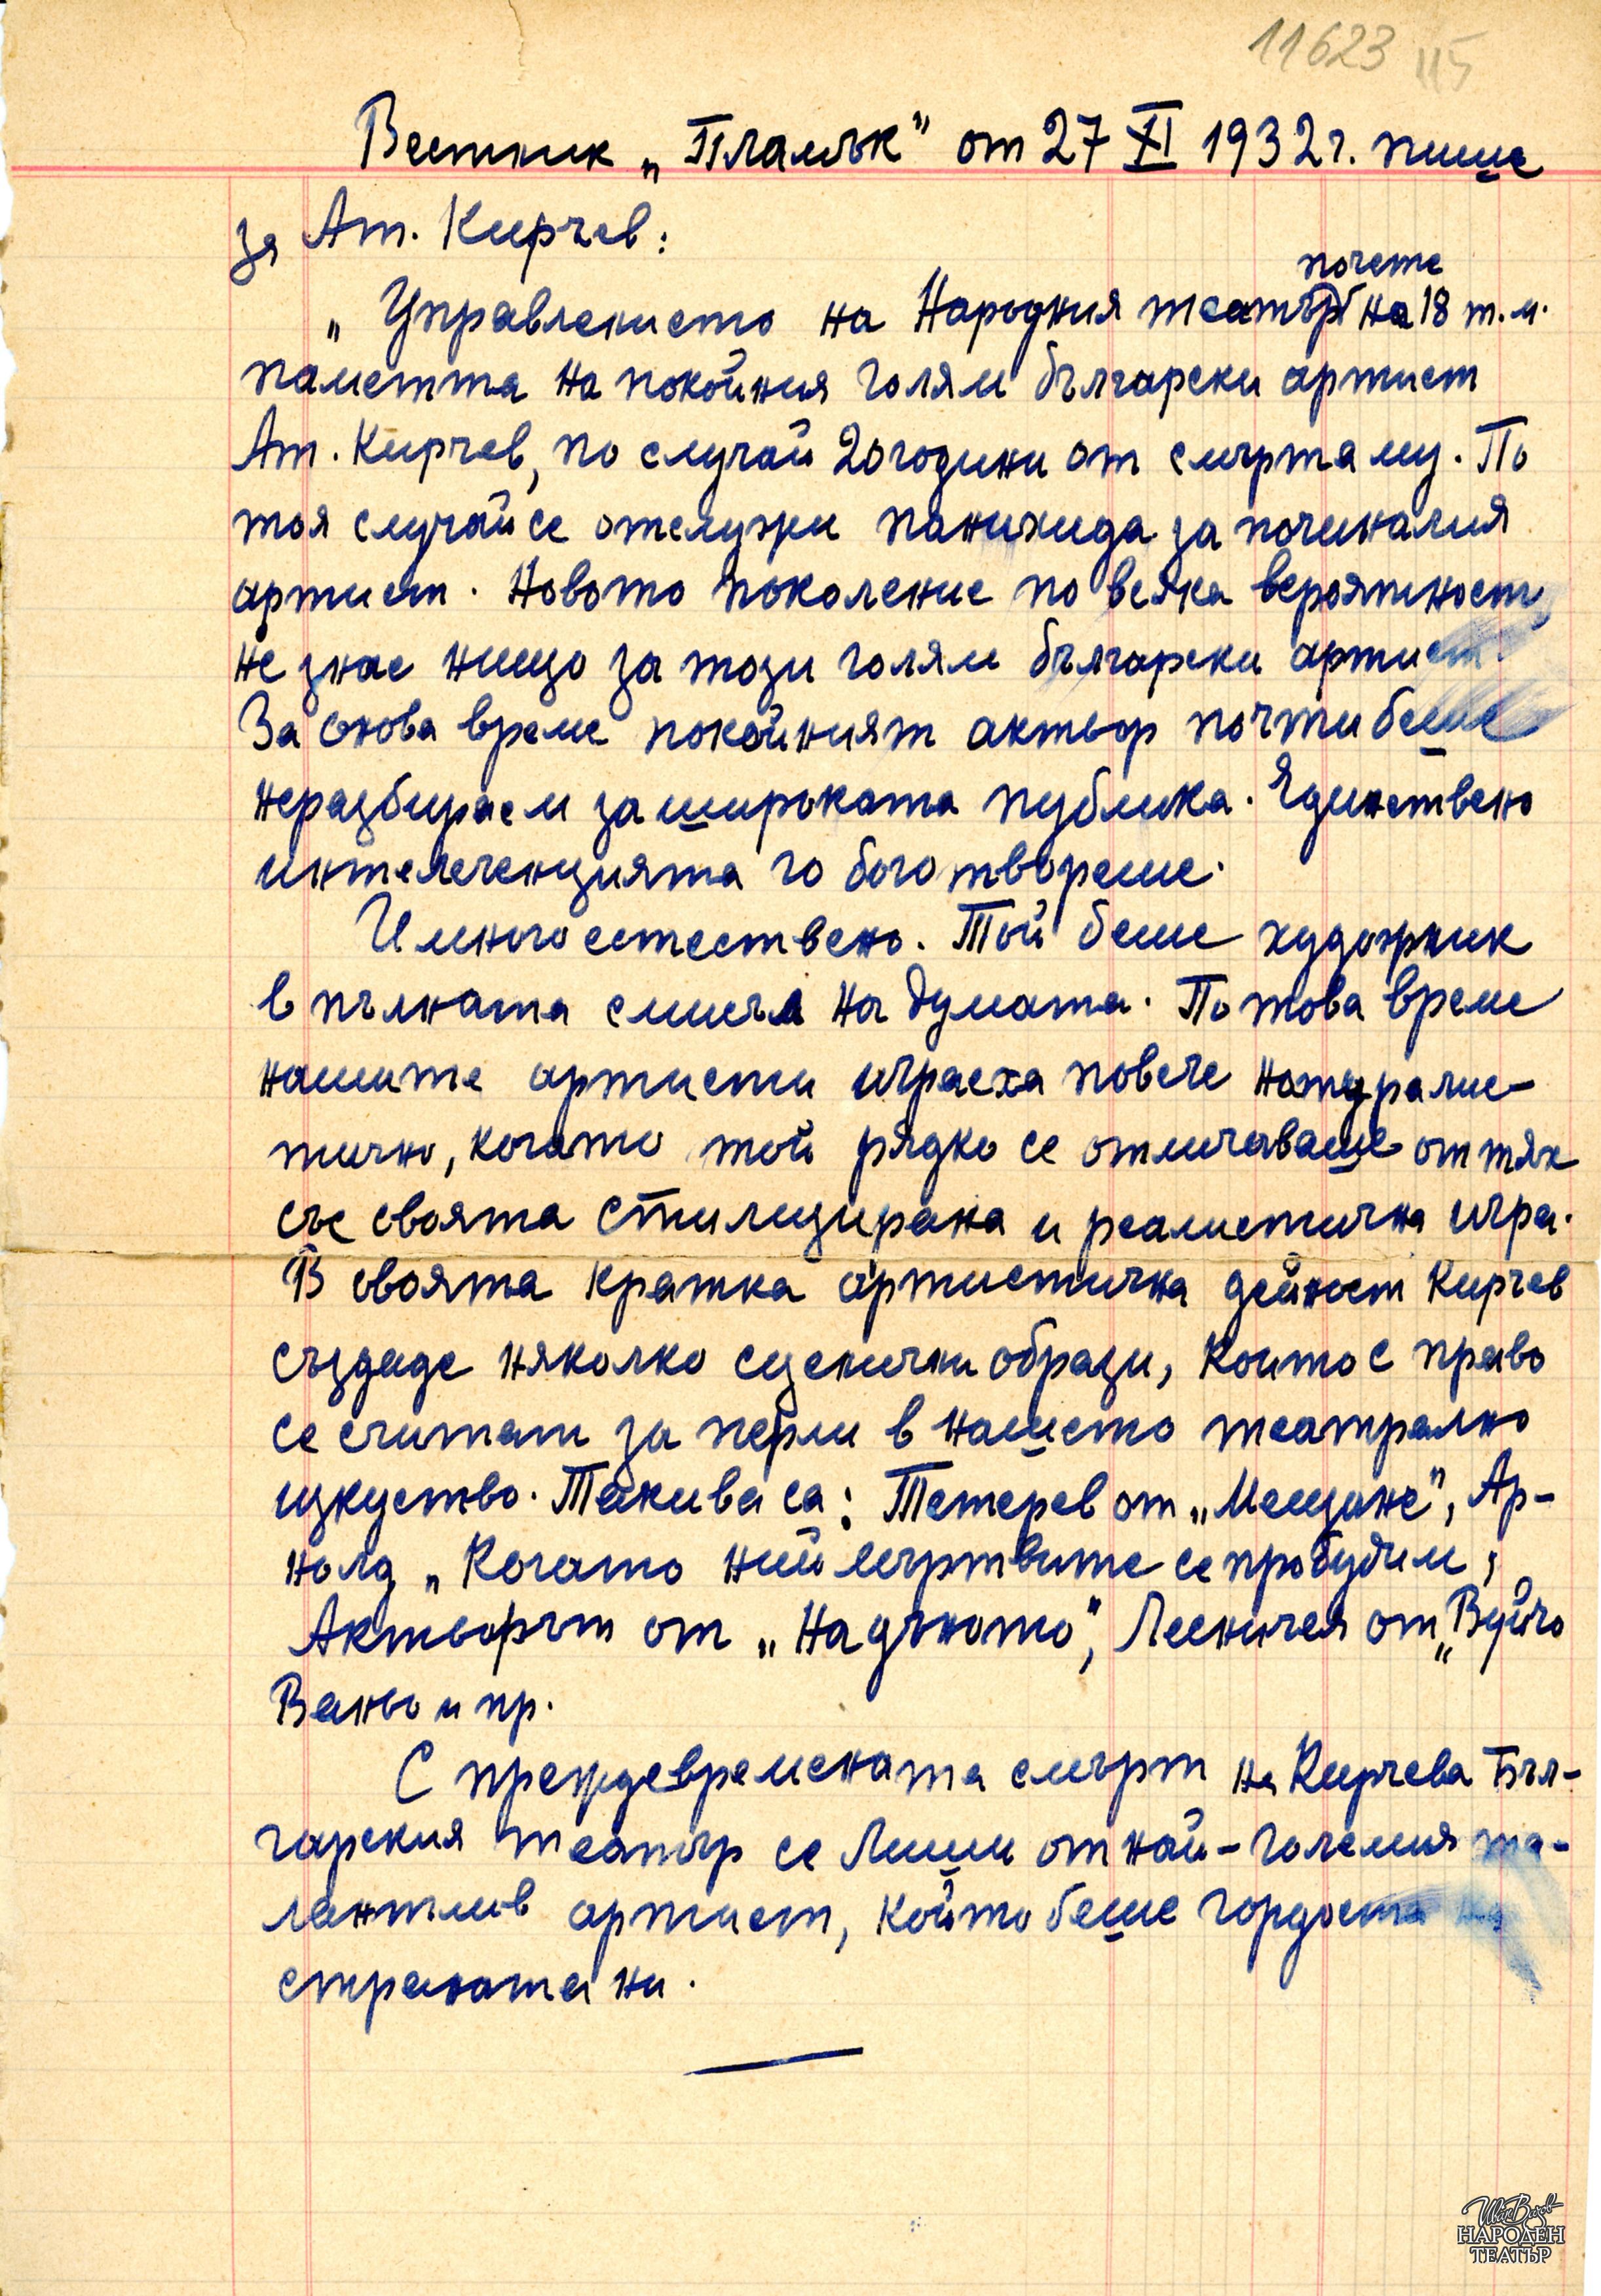 11623 115
Вестник „Пламък" от 27 XI 1932 г. пише
за Ат. Кирчев:
почете
„Управлението на Народния театър на 18 т.м.
паметта на покойния голям български артист
Ат. Кирчев, по случай 20 години от смъртта му. По
тоя случай се отслужи панихида за починалия
артист. Новото поколение по всяка вероятност,
не знае нищо за този голям български артист.
За онова време покойният актьор почти беше
неразбираем за широката публика. Единствено
интелегенцията го боготвореше.
И много естествено. Той беше художник
в пълната смисъл на думата. По това време
нашите артисти играеха повече натуралис-
тично, когато той рядко се отличаваше от тях
със своята стилизирана и реалистична игра.
В своята кратка артистична дейност Кирчев
създаде няколко сценични образи, които с право
се считат за перли в нашето театрално
изкуство. Такива са: Тетерев от „Мещане", Ар-
нолд „Когато ний мъртвите се пробудим,
Актьорът от „На дъното", Лесничея от „Вуйчо
Ваньо и пр.
С преждевремената смърт на Кирчева Бъл-
гарския театър се лиши от най-големия та-
лантлив артист, който беше гордостта на
страната ни.
Иван Вазов
НАРОДЕН
ТЕАТЪР